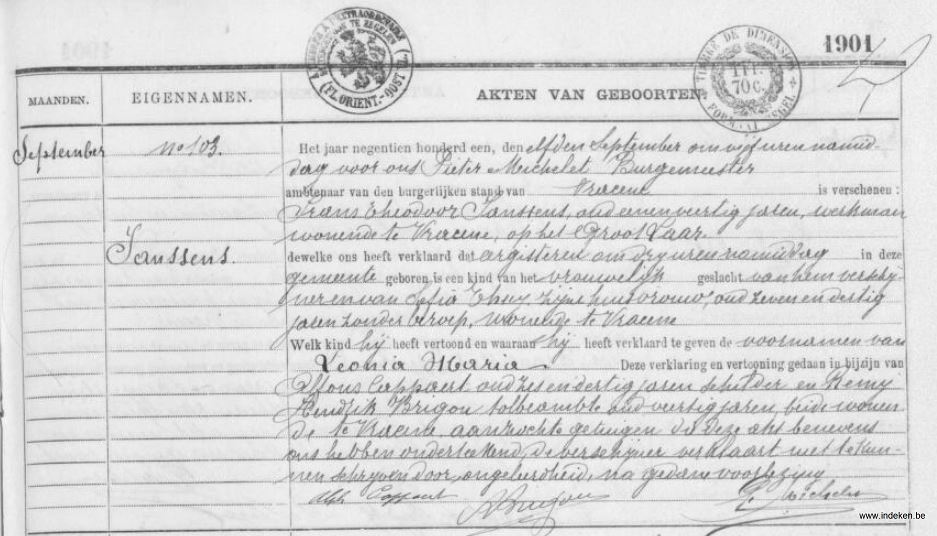 1901
TIMBRE DE DIMENSION
1 FR.
70 C.
FORMAAT ZEGEL
(FL. ORIENT.-OOST VL.)
MAANDEN. EIGENNAMEN. AKTEN VAN GEBOORTEN.
September No 103. Het jaar negentien honderd een, den elfden September om vijf uren namid-
dag voor ons Pieter Michelet Burgemeester
ambtenaar van den burgerlijken stand van Vracene is verschenen :
Frans Theodoor Janssens, oud eenenveertig jaren, werkman
wonende te Vracene, op het Groot Laar
Janssens. dewelke ons heeft verklaard dat argisteren om dry uren namiddag in deze
gemeente geboren is een kind van het vrouwelijk geslacht van hem verschij-
ner en van Sofia Thuy zijne huisvrouw, oud zeven en dertig
jaren zonder beroep, wonende te Vracene
Welk kind hij heeft vertoond en waaraan hij heeft verklaard te geven de voornamen van
Leonia Maria Deze verklaring en vertooning gedaan in bijzijn van
Alfons Cappaert oud zes en dertig jaren schilder en Remy
Hendrik Brigou tolbeambte oud veertig jaren, beide wonen
de te Vracene aanzochte getuigen die deze akt benevens
ons hebben onderteekend, de verschijner verklaart niet te kun-
nen schrijven door ongeleerdheid, na gedane voorlezing
Alph Cappaert
P. Michelet
www.indeken.be